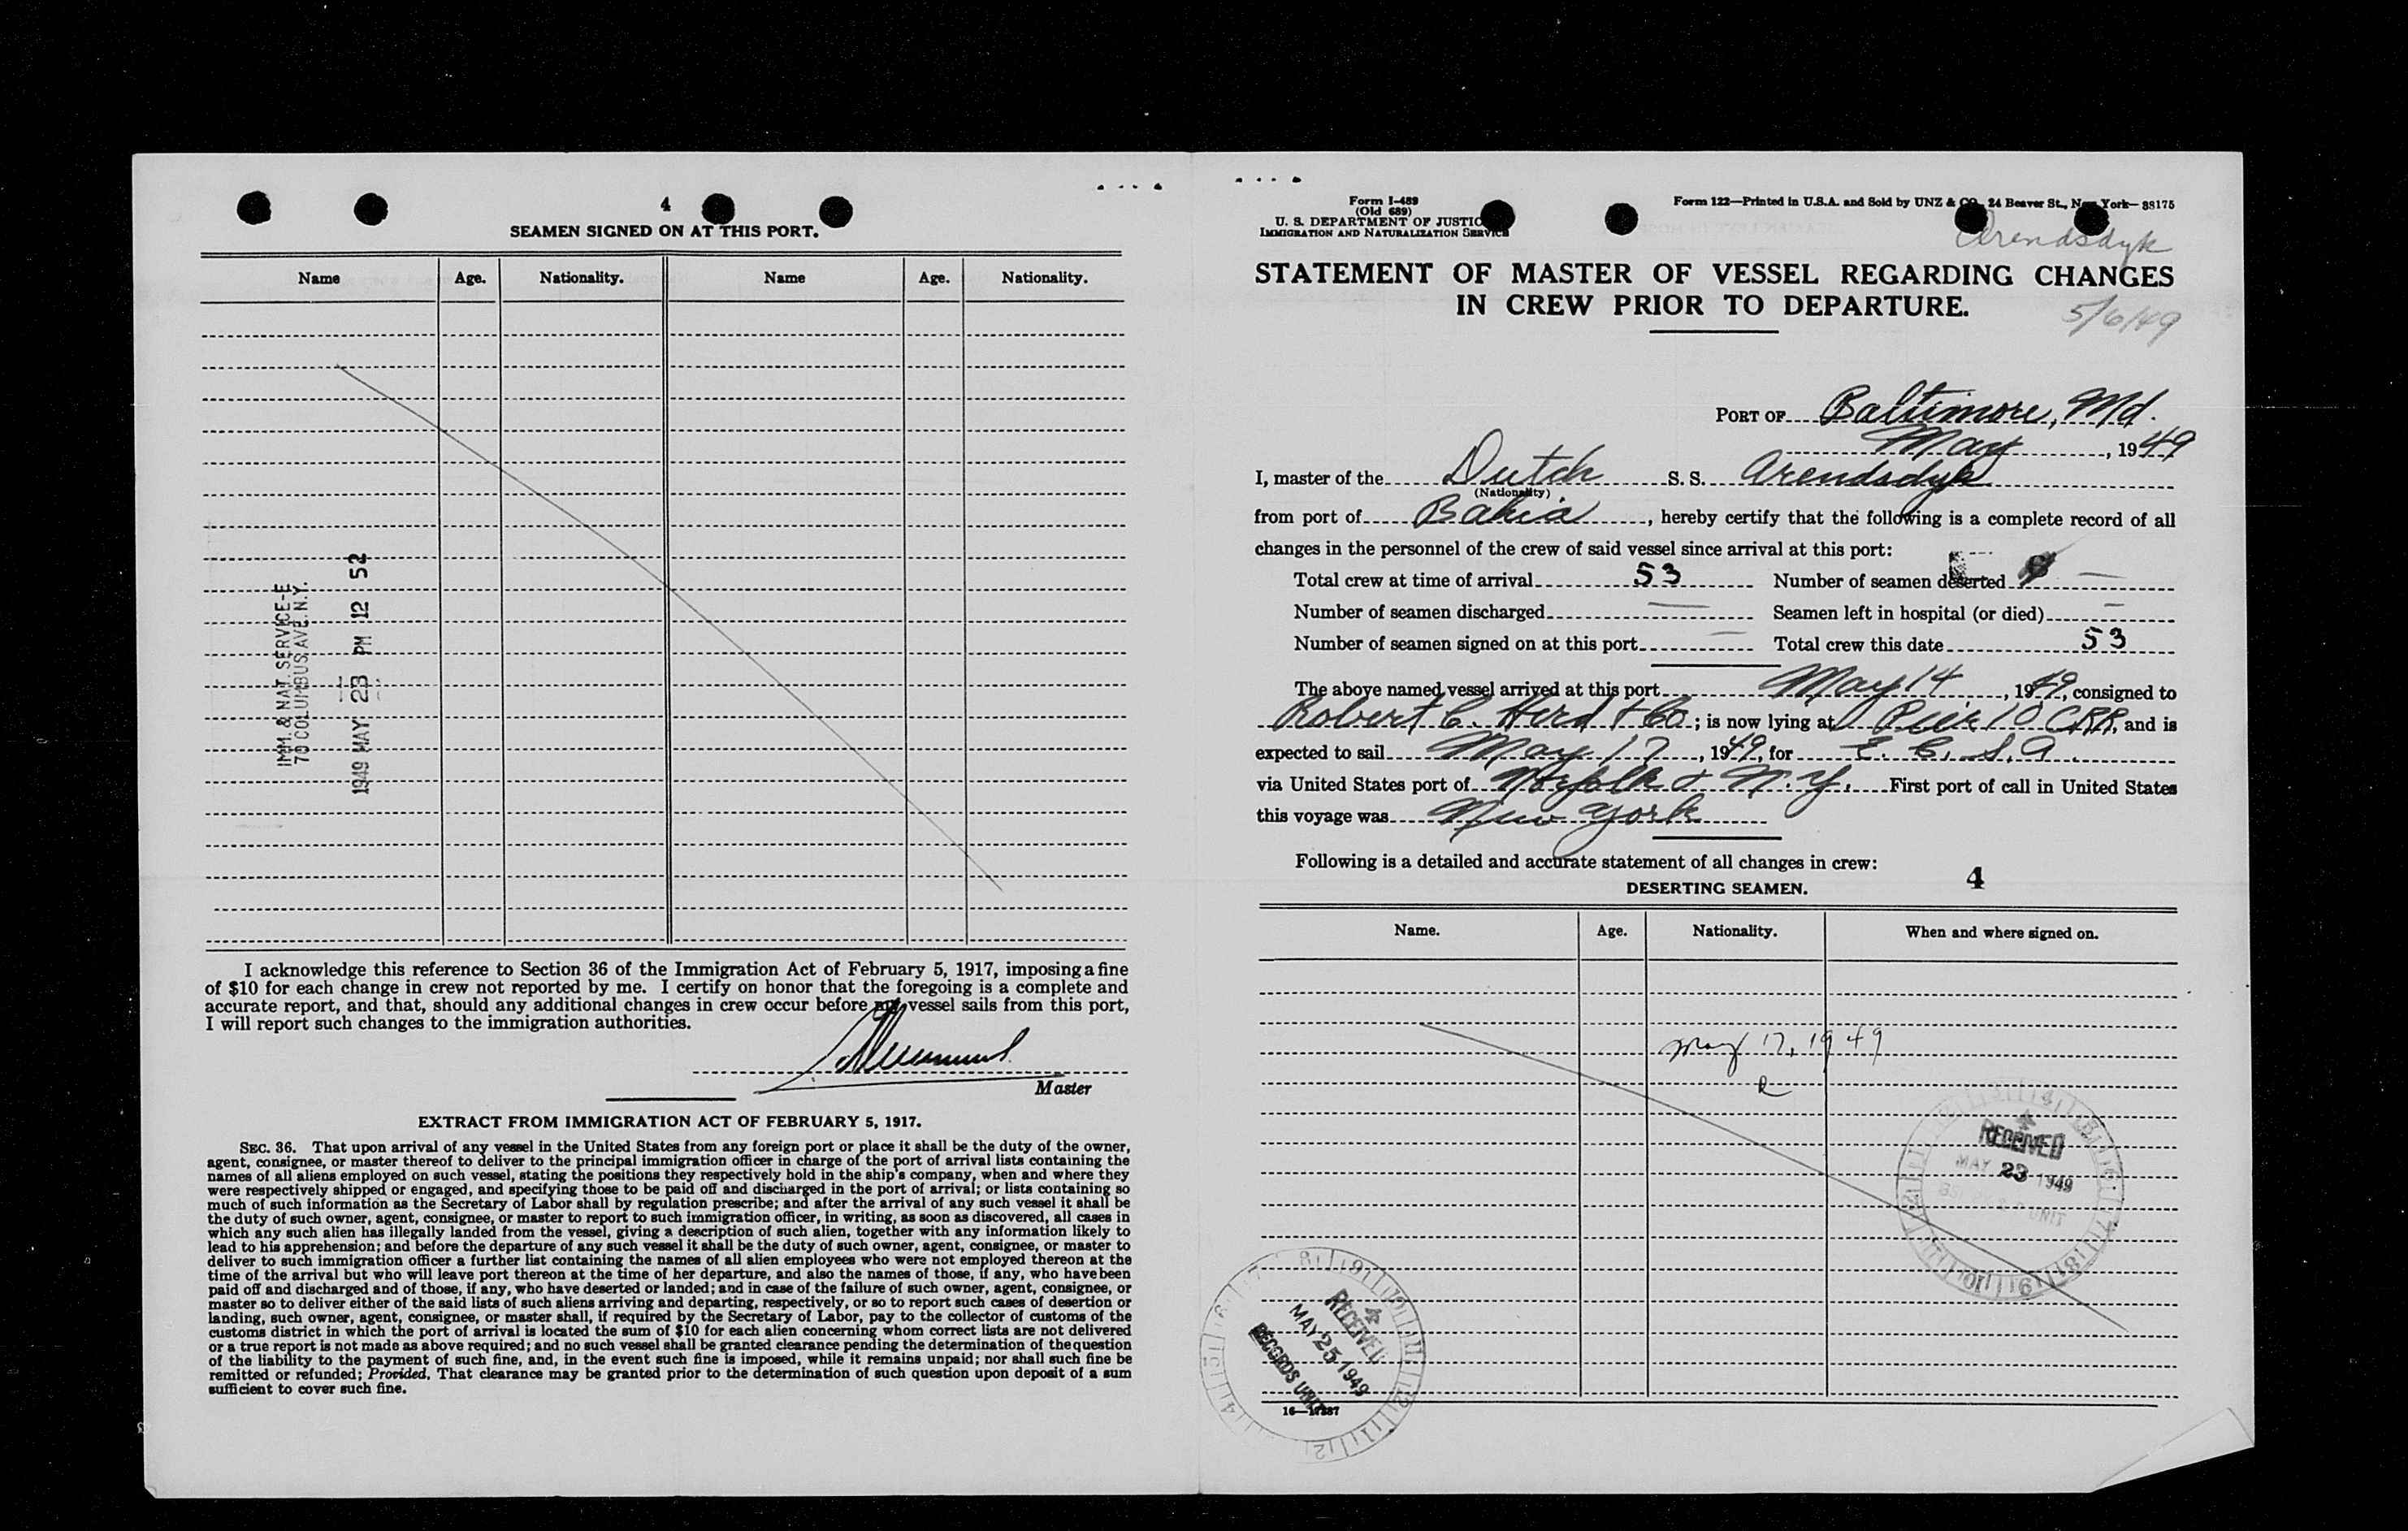 4
SEAMEN SIGNED ON AT THIS PORT.
Name Age. Nationality. Name Age. Nationality.
IMM. & NAT. SERVICE-E
70 COLUMBUS AVE. N.Y.
1949 MAY 23 PM 12 52
I acknowledge this reference to Section 36 of the Immigration Act of February 5, 1917, imposing a fine
of $10 for each change in crew not reported by me. I certify on honor that the foregoing is a complete and
accurate report, and that, should any additional changes in crew occur before my vessel sails from this port,
I will report such changes to the immigration authorities.
Master
EXTRACT FROM IMMIGRATION ACT OF FEBRUARY 5, 1917.
SEC. 36. That upon arrival of any vessel in the United States from any foreign port or place it shall be the duty of the owner,
agent, consignee, or master thereof to deliver to the principal immigration officer in charge of the port of arrival lists containing the
names of all aliens employed on such vessel, stating the positions they respectively hold in the ship's company, when and where they
were respectively shipped or engaged, and specifying those to be paid off and discharged in the port of arrival; or lists containing so
much of such information as the Secretary of Labor shall by regulation prescribe; and after the arrival of any such vessel it shall be
the duty of such owner, agent, consignee, or master to report to such immigration officer, in writing, as soon as discovered, all cases in
which any such alien has illegally landed from the vessel, giving a description of such alien, together with any information likely to
lead to his apprehension; and before the departure of any such vessel it shall be the duty of such owner, agent, consignee, or master to
deliver to such immigration officer a further list containing the names of all alien employees who were not employed thereon at the
time of the arrival but who will leave port thereon at the time of her departure, and also the names of those, if any, who have been
paid off and discharged and of those, if any, who have deserted or landed; and in case of the failure of such owner, agent, consignee, or
master so to deliver either of the said lists of such aliens arriving and departing, respectively, or so to report such cases of desertion or
landing, such owner, agent, consignee, or master shall, if required by the Secretary of Labor, pay to the collector of customs of the
customs district in which the port of arrival is located the sum of $10 for each alien concerning whom correct lists are not delivered
or a true report is not made as above required; and no such vessel shall be granted clearance pending the determination of the question
of the liability to the payment of such fine, and, in the event such fine is imposed, while it remains unpaid; nor shall such fine be
remitted or refunded; Provided, That clearance may be granted prior to the determination of such question upon deposit of a sum
sufficient to cover such fine.
Form I-489
(Old 689)
U. S. DEPARTMENT OF JUSTIC
IMMIGRATION AND NATURALIZATION SERVICE
Form 122—Printed in U.S.A. and Sold by UNZ & CO., 24 Beaver St., New York—38175
Arendsdyk
STATEMENT OF MASTER OF VESSEL REGARDING CHANGES
IN CREW PRIOR TO DEPARTURE.
5/6/49
PORT OF Baltimore, Md.
May, 1949
I, master of the Dutch S. S. Arendsdyk
(Nationality)
from port of Bahia, hereby certify that the following is a complete record of all
changes in the personnel of the crew of said vessel since arrival at this port:
Total crew at time of arrival 53 Number of seamen deserted —
Number of seamen discharged — Seamen left in hospital (or died) —
Number of seamen signed on at this port — Total crew this date 53
The above named vessel arrived at this port May 14, 1949, consigned to
Robert C. Herd & Co; is now lying at Pier 10 CRR, and is
expected to sail May 17, 1949, for E. C. S. A.
via United States port of Norfolk & N. Y. First port of call in United States
this voyage was New York
Following is a detailed and accurate statement of all changes in crew:
4
DESERTING SEAMEN.
Name. Age. Nationality. When and where signed on.
May 17, 1949
RECEIVED
MAY 23 1949
UNIT
RECEIVED
MAY 25 1949
RECORDS UNIT
16—17287